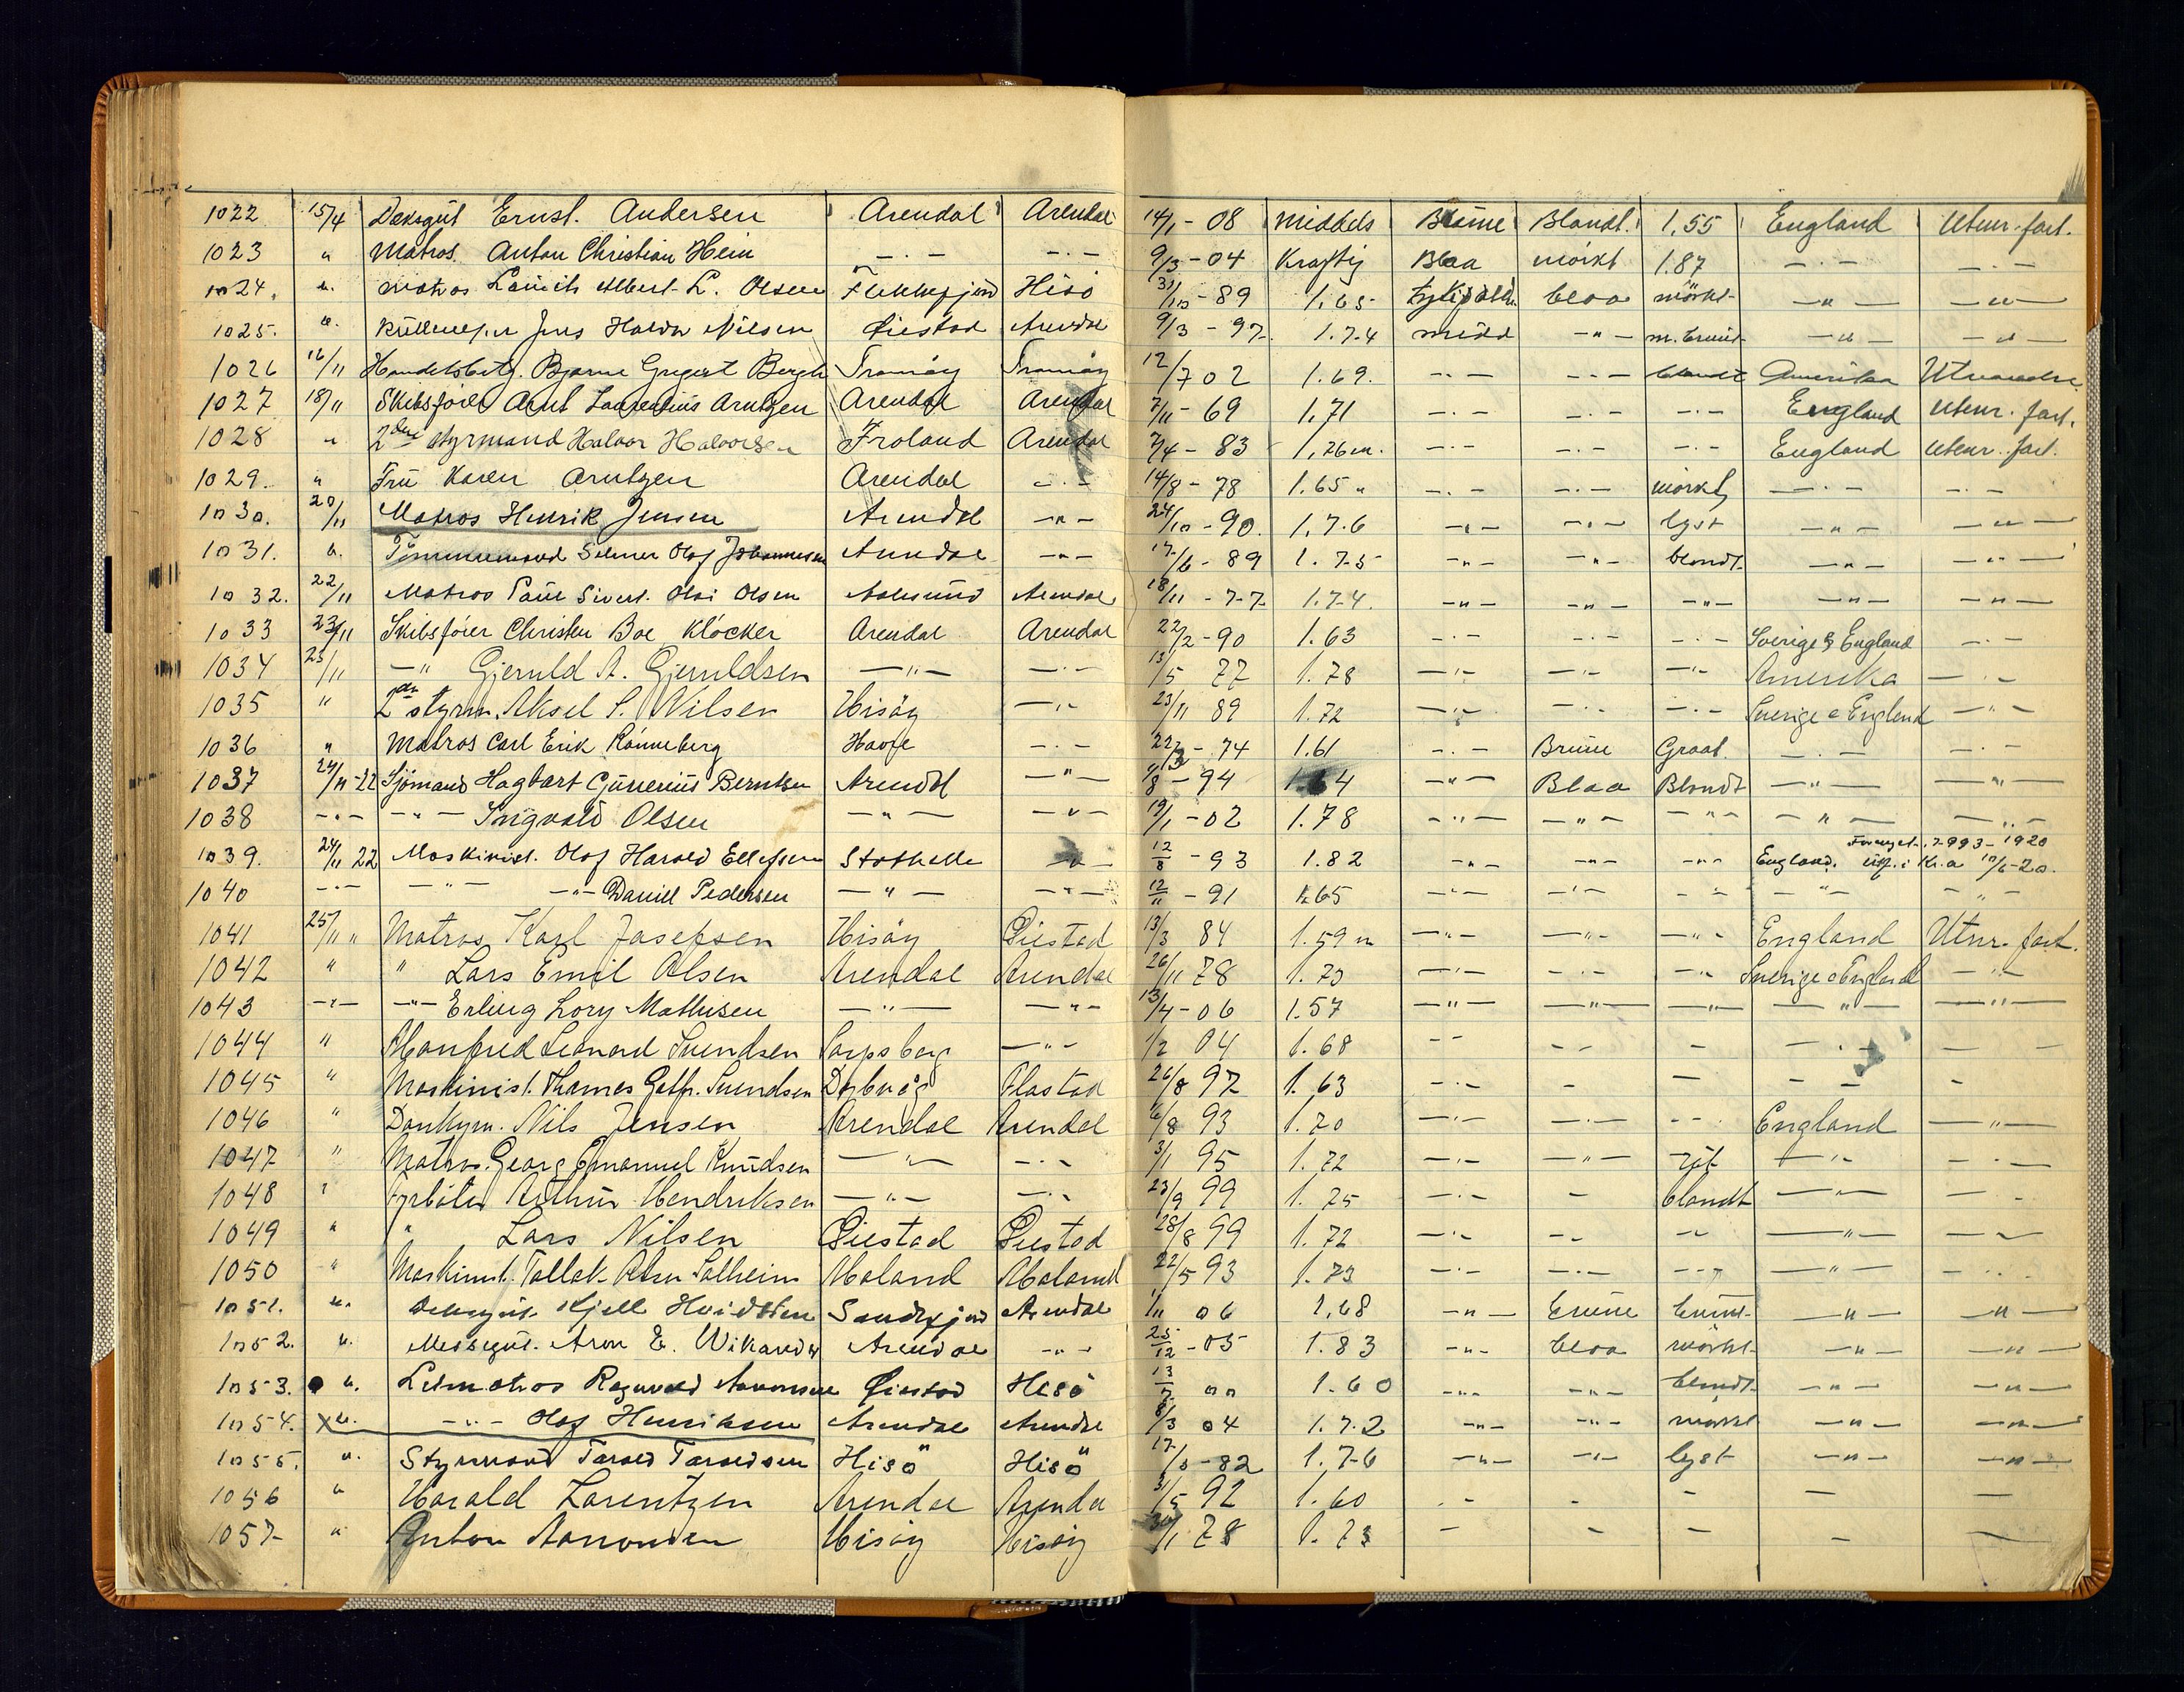 1022 15/4 Deksgut Ernst. Andersen Arendal Arendal 14/1 - 08 middels Brune Blondt. 1.55 England Utenr. fart.
1023 " Matros. Anton Christian Hein - . - - . - 9/3 - 04 Kraftig Blaa mörkt 1.87 - . - - . -
1024. " Matros Albert L. Olsen Flekkefjord Hisö 31/10 - 89 1.65 blaa mörkt - " - - " -
1025. " Jens Nilsen Öiestad Arendal 9/3 - 97 1.74 midd - " - m. brunt - " - - " -
1026 16/11 Handelsbetj. Bjarne Gregert Bergh Tromöy Tromöy 12/7 02 1.69. - - - - - - blondt Amerika Utvandre
1027 18/11 Skibsförer Arnt Laurentius Arntzen Arendal Arendal 7/11 - 69 1.71 - . - - . - - . - England Utenr. fart.
1028 " 2den Styrmand Halvor Halvorsen Froland Arendal 7/4 - 83 1,76 m. - . - - . - - . - England Utenr. fart.
1029. " Fru Karen Arntzen Arendal - . - 14/8 - 78 1.65 " - . - - . - mörkt - . - - . -
1030. 20/11 Matros Henrik Jensen Arendal - " - 24/10 - 90. 1.76 - " - - " - lyst - " - - " -
1031. " Tömmermand Selmer Olaf Johannesen Arendal - " - 17/6 - 89 1.75 - " - - " - blondt - " - - " -
1032. 22/11 Matros Paul Sivert. Olai Olsen Aalesund Arendal 18/11 - 77 1.74. - " - - " - - " - - " - - " -
1033 23/11 Skibsförer Christen Boe Klöcker Arendal Arendal 22/2 - 90 1.63 - . - - . - - . - Sverige & England - . -
1034 23/11 - " Gjeruld A. Gjeruldsen - " - - . - 13/5 77 1.78 - " - - " - - " - Amerika - . -
1035 " 2den styrm. Aksel S. Nilsen Hisöy - " - 23/11 89 1.72 - " - - . - - . - Sverige o England - " -
1036 " Matros Carl Erik Rönneberg - . - 1.61 - . - Brune Graat. - . - - . -
1037 24/11 - 22 Sjömand Hagbart Gunerius Berntsen Arendal - " - 4/8 - 94 1.64 - " - Blaa Blondt - " - - " -
1038 - " - - " - Ingvald Olsen - " - - " - 19/1 - 02 1.78 - " - - " - - " - - " - - " -
1039. 24/11 22 Maskinist. Olaf Harald Ellefsen Stathelle - " - 12/8 - 93 1.82 - " - - " - - " - England. 2993 - 1920 utf. i Kr.a 10/6 - 20.
1040 - " - - " - - " - Daniel Pedersen - " - - " - 12/11 - 91 1.65 - " - - " - - " - - " - - " -
1041 25/11 " Matros Karl Josefsen Hisöy Öiestad 13/3 84 1.59 m - " - - " - - " - England Utenr. fart.
1042 " " Lars Emil Olsen Arendal Arendal 26/11 78 1.73 - " - - . - - " Sverige o England - " -
1043 - " - - " - Erling Lory Mathisen - " - - " - 13/4 - 06 1.57 - " - - " - - " - - " - - " -
1044 " Manfred Leonard Svendsen Sarpsborg - " - 1/2 04 1.68 - - - - - - . - - -
1045 " Maskinist. Thomas Gotfr. Svendsen 26/8 97 1.63 - . - - - - - -
1046 " Donkym. Nils Jensen Arendal Arendal 6/8 93 1.70 - . - - . - - - England - " -
1047 " Matros. Georg Emanuel Knudsen - " - - . - 3/1 95 1.72 - . - - " - - " - - . -
1048 " Fyrböter Arthur Hendriksen - " - - . - 23/9 99 1.75 - . - - blondt - " - - -
1049 " " Lars Nilsen Öiestad Öiestad 28/8 99 1.72 - . - - - - - - " - - -
1050 " Maskinist. Tallak Olsen Solheim Moland Moland 22/5 93 1.73 - . - - . - - - - " - - . -
1051. " Kjell Hvidsten Sandefjord Arendal 1/11 06 1.68 - " - brune brunt - " - - " -
1052. " Messegut. Aron E. Wikander Arendal - " - 25/12 - 05 1.83 - " - blaa mörkt - " - - " -
1053. " Letmatros Ragnvald Aanonsen Öiestad Hisö 13/7 00 1.60 - " - - " - blondt - " - - " -
1054. X " - " - Olaf Henriksen Arendal Arendal 8/3 04 1.72 - " - - " - mörkt - " - - " -
1055. " Styrmand Tarald Taraldsen Hisö Hisö 17/3 - 82 1.76 - " - - " - lyst - " - - " -
1056 " Harald Larentzen Arendal Arendal 31/5 92 1.60 - - - - - -
1057 " Anton Aanonsen Hisöy Hisöy 30/1 78 1.73 - - - - -